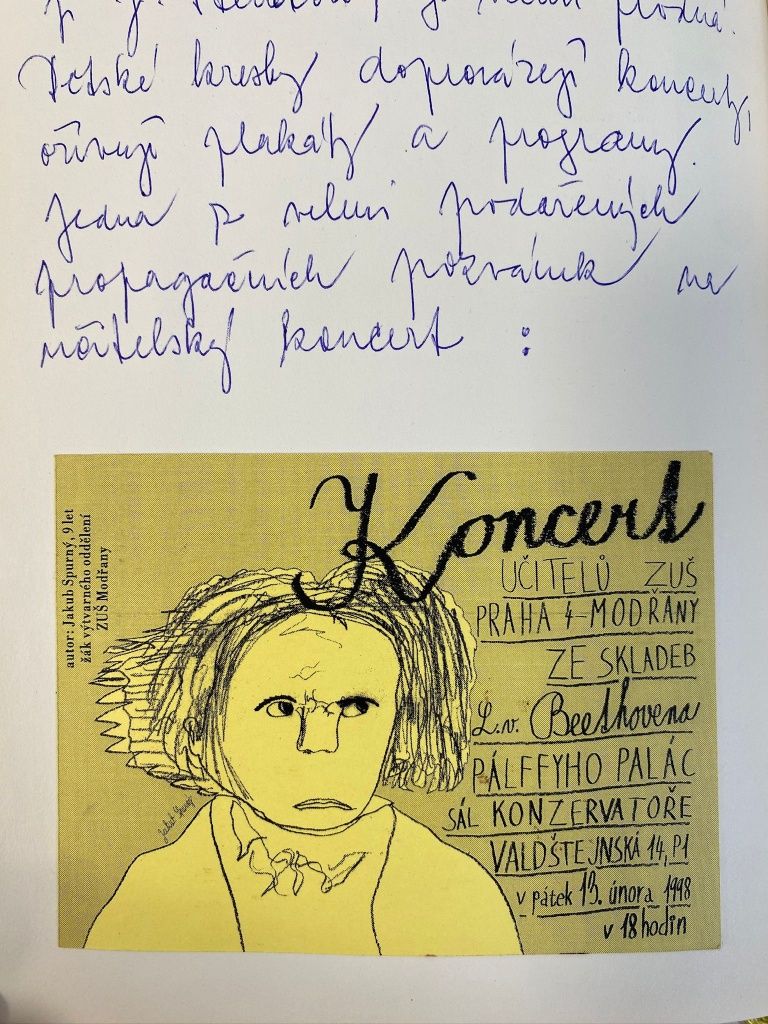 je velmi plodná.
Dětské kresby doprovázejí koncerty,
oživují plakáty a programy.
Jedna z velmi podařených
propagačních pozvánek na
učitelský koncert :
autor: Jakub Spurný, 9 let
žák výtvarného oddělení
ZUŠ Modřany
Koncert
UČITELŮ ZUŠ
PRAHA 4-MODŘANY
ZE SKLADEB
L.v. Beethovena
PÁLFFYHO PALÁC
SÁL KONZERVATOŘE
VALDŠTEJNSKÁ 14, P1
v pátek 13. února 1998
v 18 hodin
Jakub Spurný